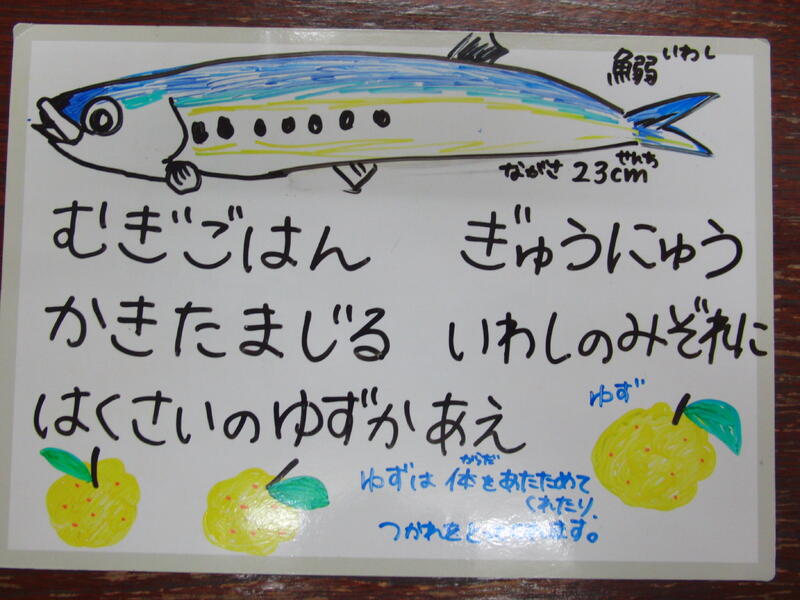 鰯 いわし
ながさ 23cm せんち
むぎごはん ぎゅうにゅう
かきたまじる いわしのみぞれに
はくさいのゆずかあえ
ゆず
からだ
ゆずは 体をあたためて
くれたり、
つかれを ます。